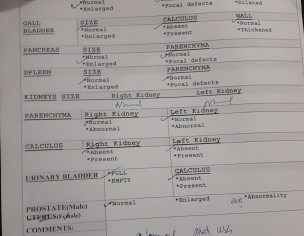 *Normal *Focal defects *Dilated
*Enlarged
GALL SIZE CALCULUS WALL
BLADDER *Normal *Absent *Normal
*Enlarged *Present *Thickened
PANCREAS SIZE PARENCHYMA
*Normal *Normal
*Enlarged *Focal defects
SPLEEN SIZE PARENCHYMA
*Normal *Normal
*Enlarged *Focal defects
KIDNEYS SIZE Right Kidney Left Kidney
Normal Normal
PARENCHYMA Right Kidney Left Kidney
*Normal *Normal
*Abnormal *Abnormal
CALCULUS Right Kidney Left Kidney
*Absent *Absent
*Present *Present
URINARY BLADDER *FULL CALCULUS
*EMPTY *Absent
*Present
PROSTATE(Male) *Normal *Enlarged *Abnormality
UTERUS(Female)
COMMENTS:
Normal